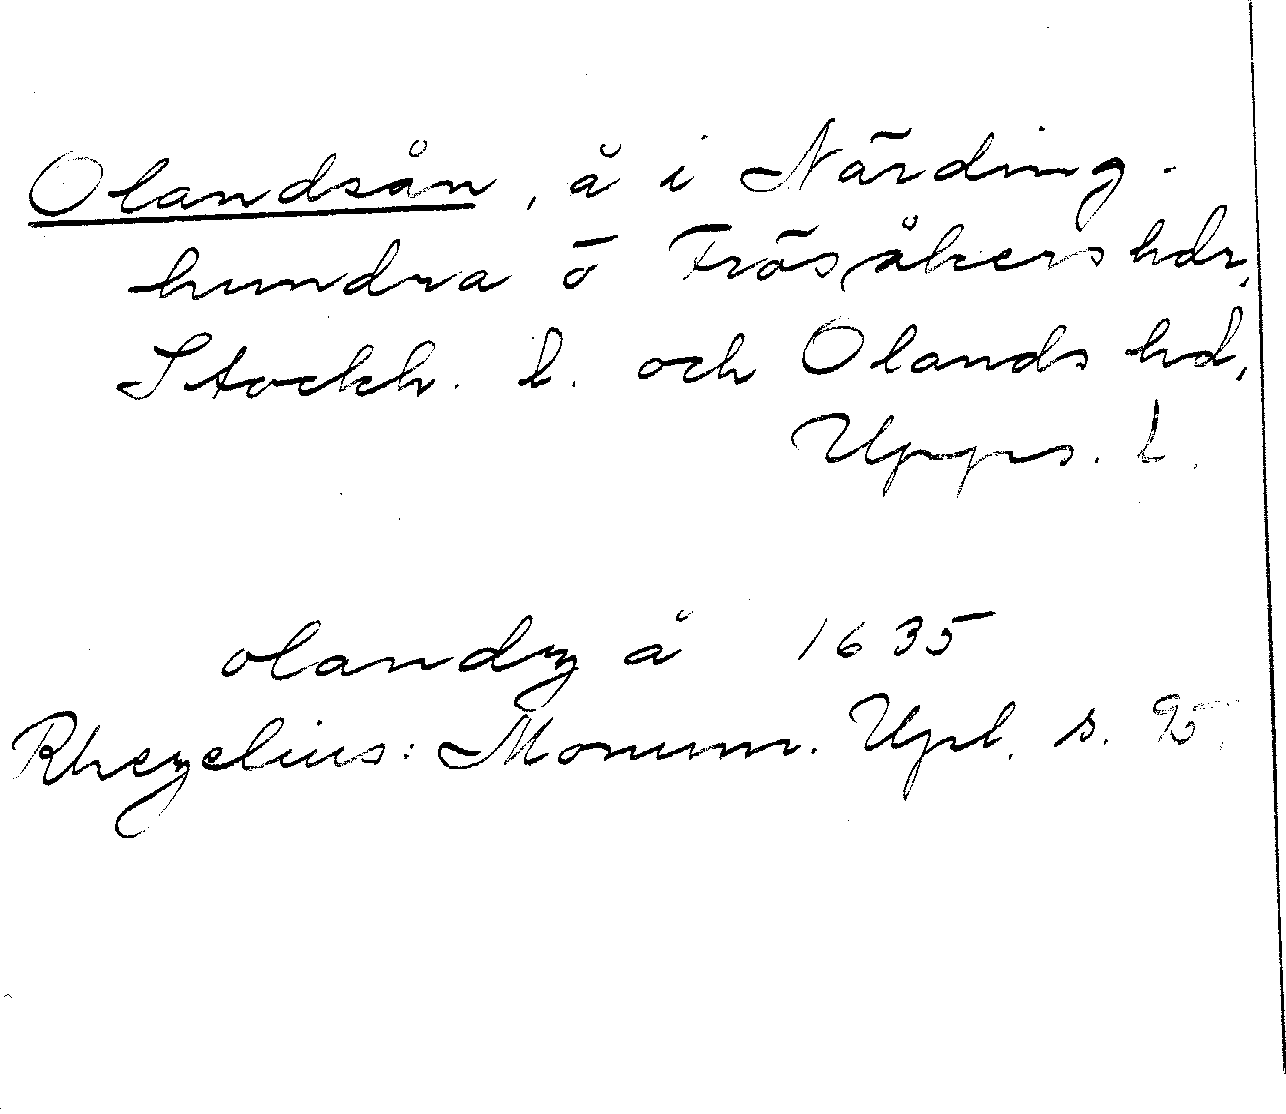 Olandsån, å i Närding-
hundra o Frösåkers hdr,
Stockh. l. och Olands hd,
Upps. l.
olandz å 1635
Rhezelius: Monum. Upl. s. 95.